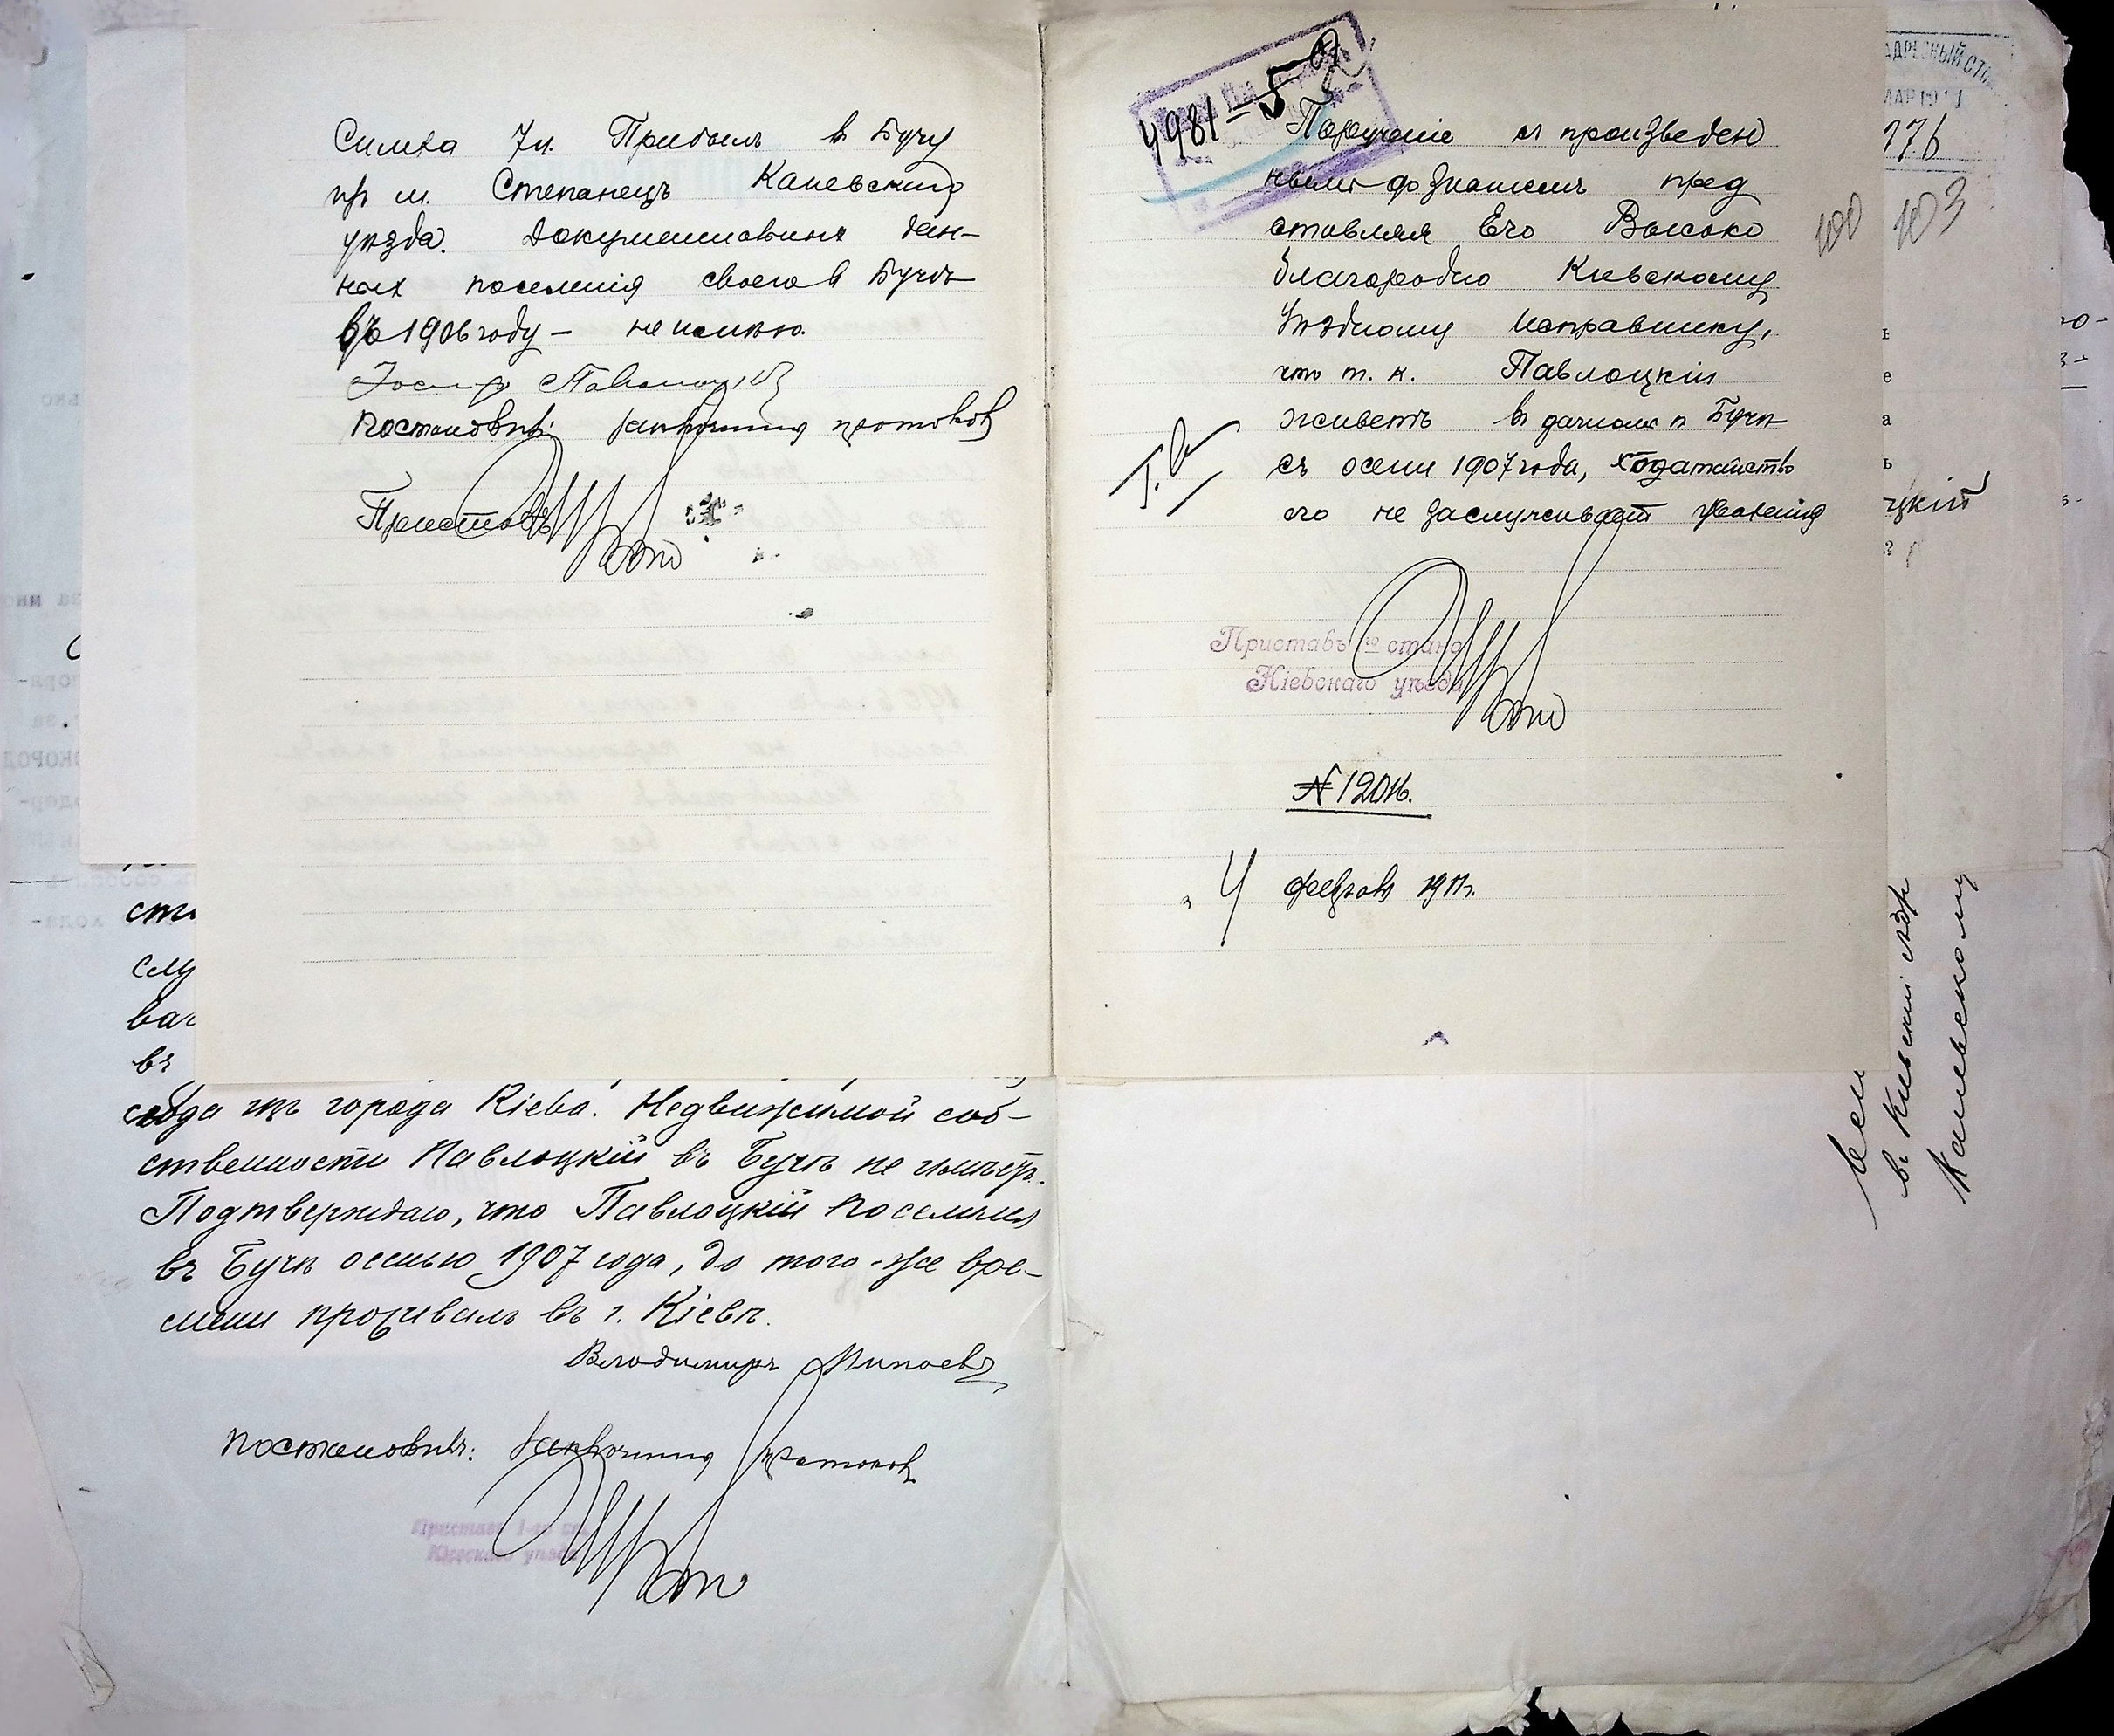 Симха 7л. Прибылъ въ Бучу
изъ м. Степанецъ Каневскаго
уѣзда. Документовыхъ дан-
ныхъ поселенія своего въ Бучѣ
въ 1906 году – не имѣю.
Постановилъ: заключить протоколъ
Приставъ
4981
Порученіе съ произведен
нымъ дознаніемъ пред
ставляя Его Высоко
благородію Кіевскому
Уѣздному Исправнику,
что т. к. Павлоцкій
живетъ въ дачномъ п Бучѣ
съ осени 1907 года, ходатайство
его не заслуживаетъ уваженія
Приставъ 1го стана
Кіевскаго уѣзда
№ 1204.
4 февраля 1911г.
АДРЕСНЫЙ СТО
МАР 19
276
100 103
цкій
сти
слу
ваг
въ
сюда изъ города Кіева. Недвижимой соб-
ственности Павлоцкій въ Бучѣ не имѣетъ.
Подтверждаю, что Павлоцкій поселился
въ Бучѣ осенью 1907 года, до того-же вре-
мени проживалъ въ г. Кіевѣ.
Владимиръ Минаевъ
Постановилъ: заключить протоколъ
Приставъ 1-го ст
Кіевскаго уѣзда
въ Кіевскій Адр
Каневскому